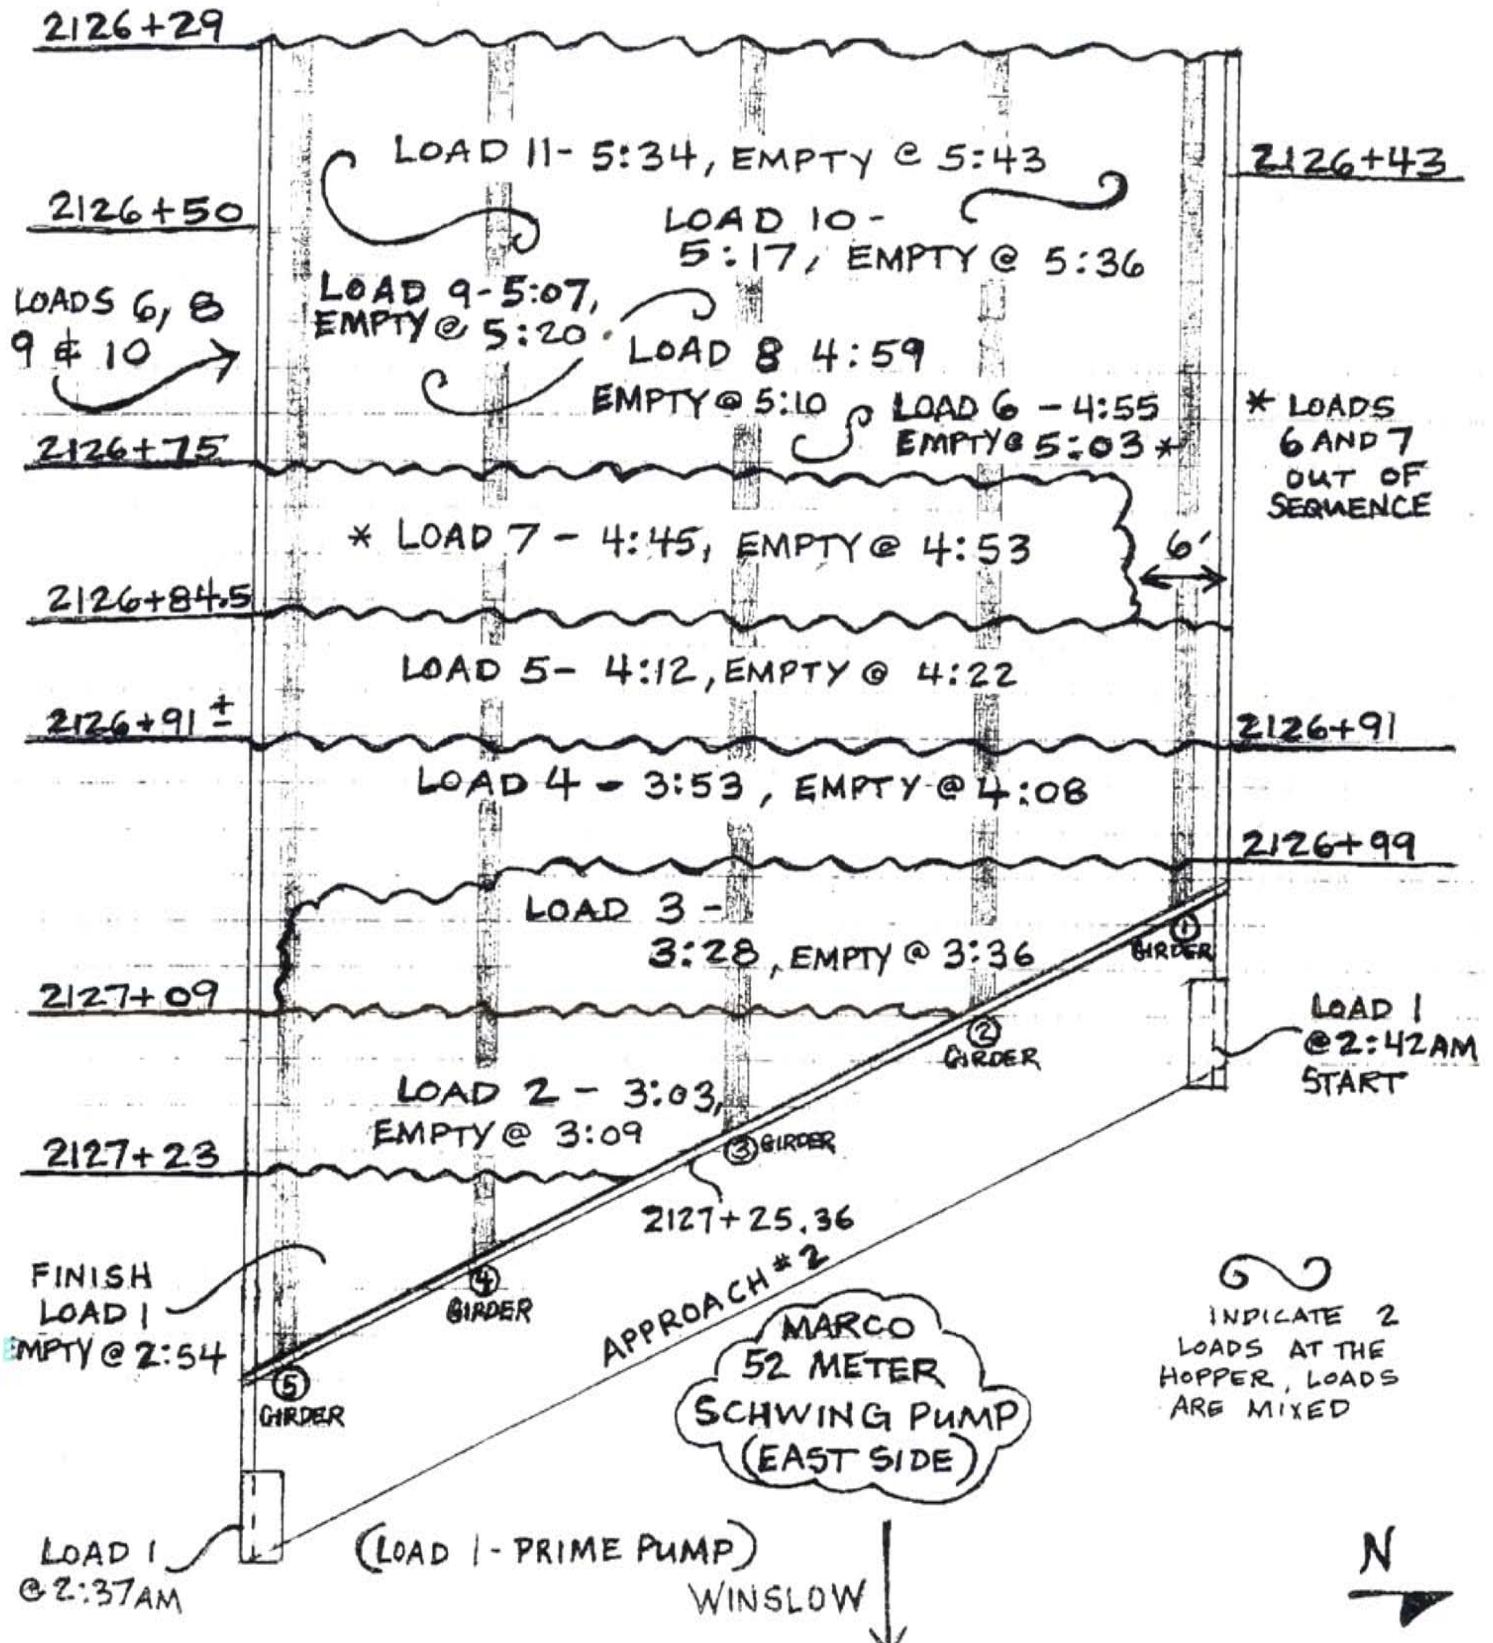 2126+29
LOAD 11- 5:34, EMPTY @ 5:43
2126+43
2126+50
LOAD 10-
5:17, EMPTY @ 5:36
LOADS 6, 8
9 & 10
LOAD 9-5:07,
EMPTY @ 5:20
LOAD 8 4:59
EMPTY @ 5:10
LOAD 6 - 4:55
EMPTY @ 5:03 *
* LOADS
6 AND 7
OUT OF
SEQUENCE
2126+75
* LOAD 7 - 4:45, EMPTY @ 4:53
6'
2126+84.5
LOAD 5- 4:12, EMPTY @ 4:22
2126+91 ±
2126+91
LOAD 4 - 3:53, EMPTY @ 4:08
2126+99
LOAD 3 -
3:28, EMPTY @ 3:36
① GIRDER
2127+09
② GIRDER
LOAD 1
@ 2:42AM
START
LOAD 2 - 3:03,
EMPTY @ 3:09
③ GIRDER
2127+23
2127+25.36
APPROACH #2
FINISH
LOAD 1
EMPTY @ 2:54
④ GIRDER
⑤ GIRDER
MARCO
52 METER
SCHWING PUMP
(EAST SIDE)
INDICATE 2
LOADS AT THE
HOPPER, LOADS
ARE MIXED
LOAD 1
@ 2:37AM
(LOAD 1 - PRIME PUMP)
WINSLOW
N